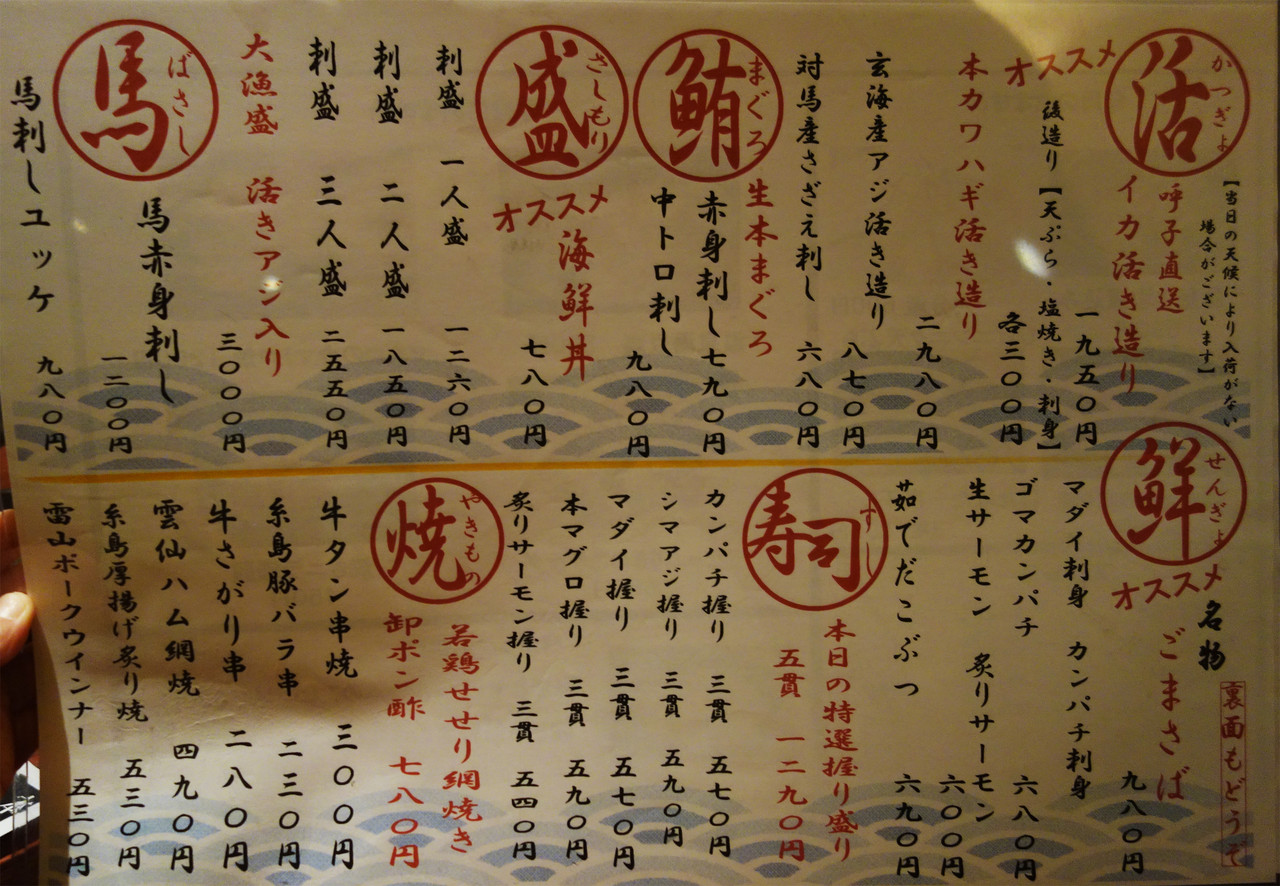 活
かつぎょ
【当日の天候により入荷がない
場合がございます】
呼子直送
イカ活き造り
一九五〇円
オススメ
後造り【天ぷら・塩焼き・刺身】
各三〇〇円
本カワハギ活き造り
二九八〇円
玄海産アジ活き造り
八七〇円
対馬産さざえ刺し
六八〇円
鮪
まぐろ
生本まぐろ
赤身刺し 七九〇円
中トロ刺し
九八〇円
盛
さしもり
オススメ
海鮮丼
七八〇円
刺盛 一人盛 一二六〇円
刺盛 二人盛 一八五〇円
刺盛 三人盛 二五五〇円
大漁盛 活きアジ入り
三〇〇〇円
馬
ばさし
馬赤身刺し
一二〇〇円
馬刺しユッケ
九八〇円
鮮
せんぎょ
オススメ
裏面もどうぞ
名物
ごまさば
九八〇円
マダイ刺身 カンパチ刺身
ゴマカンパチ
六八〇円
生サーモン 炙りサーモン
六〇〇円
茹でだこぶつ
六九〇円
寿司
すし
本日の特選握り盛り
五貫 一二九〇円
カンパチ握り 三貫 五七〇円
シマアジ握り 三貫 五九〇円
マダイ握り 三貫 五七〇円
本マグロ握り 三貫 五九〇円
炙りサーモン握り 三貫 五四〇円
焼
やきもの
若鶏せせり網焼き
卸ポン酢 七八〇円
牛タン串焼 三〇〇円
糸島豚バラ串 二三〇円
牛さがり串 二八〇円
雲仙ハム網焼 四九〇円
糸島厚揚げ炙り焼 五三〇円
雷山ポークウインナー 五三〇円